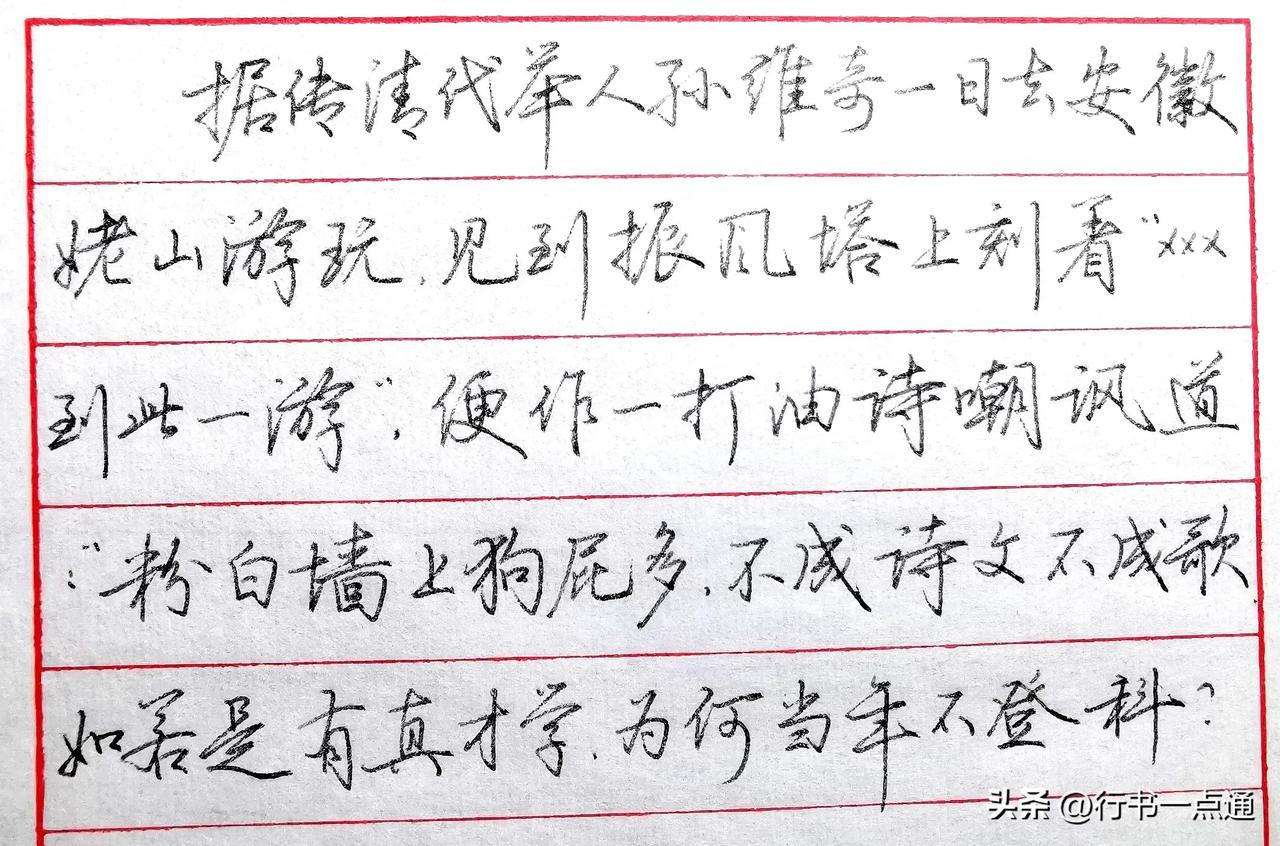 据传清代举人孙维奇一日去安徽
姥山游玩,见到振风塔上刻着“xxx
到此一游”,便作一打油诗嘲讽道
:“粉白墙上狗屁多,不成诗文不成歌
如若是有真才学,为何当年不登科?
头条 @行书一点通